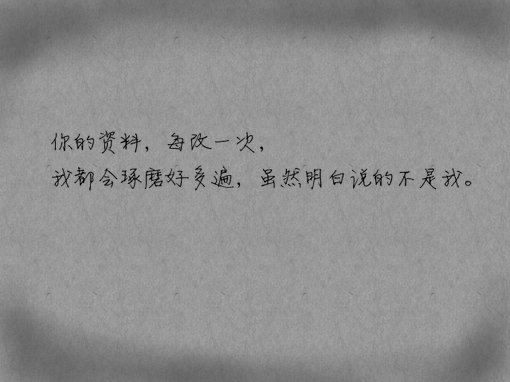 你的资料，每改一次，
我都会琢磨好多遍，虽然明白说的不是我。